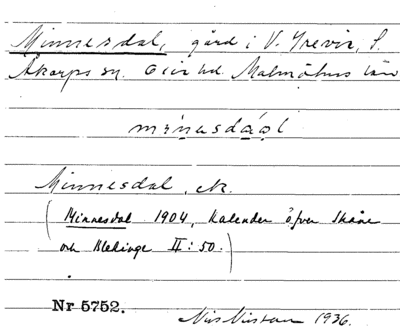 Minnesdal, gård i V. Grevie, S.
Åkarps sn. Oxie hd. Malmöhus län
Minnesdal, Jk.
(Minnesdal 1904, Kalender öfver Skåne
och Blekinge II: 50.)
Nr 5752.
1936.